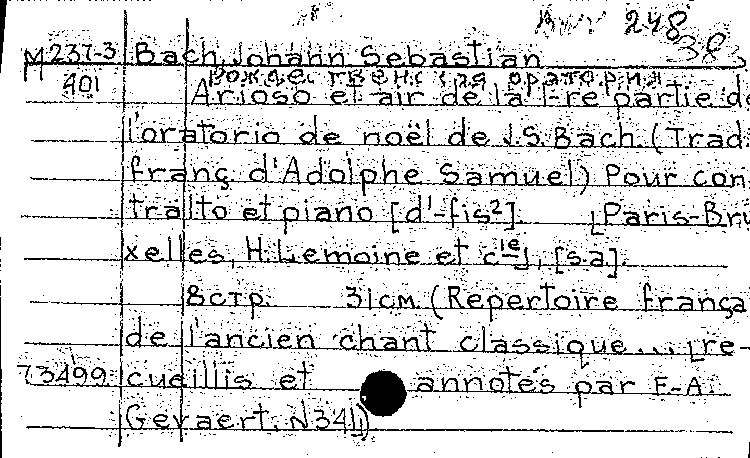 BWV 248
383
M 237-3 Bach, Johann Sebastian
401 Рождественская оратория
Arioso et air de la I-re partie de
l'oratorio de noël de J.S.Bach. (Trad.
franç d'Adolphe Samuel) Pour con
tralto et piano [d'-fis²]. [Paris-Bru
xelles, H.Lemoine et cie], [s.a].
8стр. 31см (Repertoire frança
de l'ancien chant classique... [re-
73499 cueillis et annotés par F-A.
Gevaert. N34])